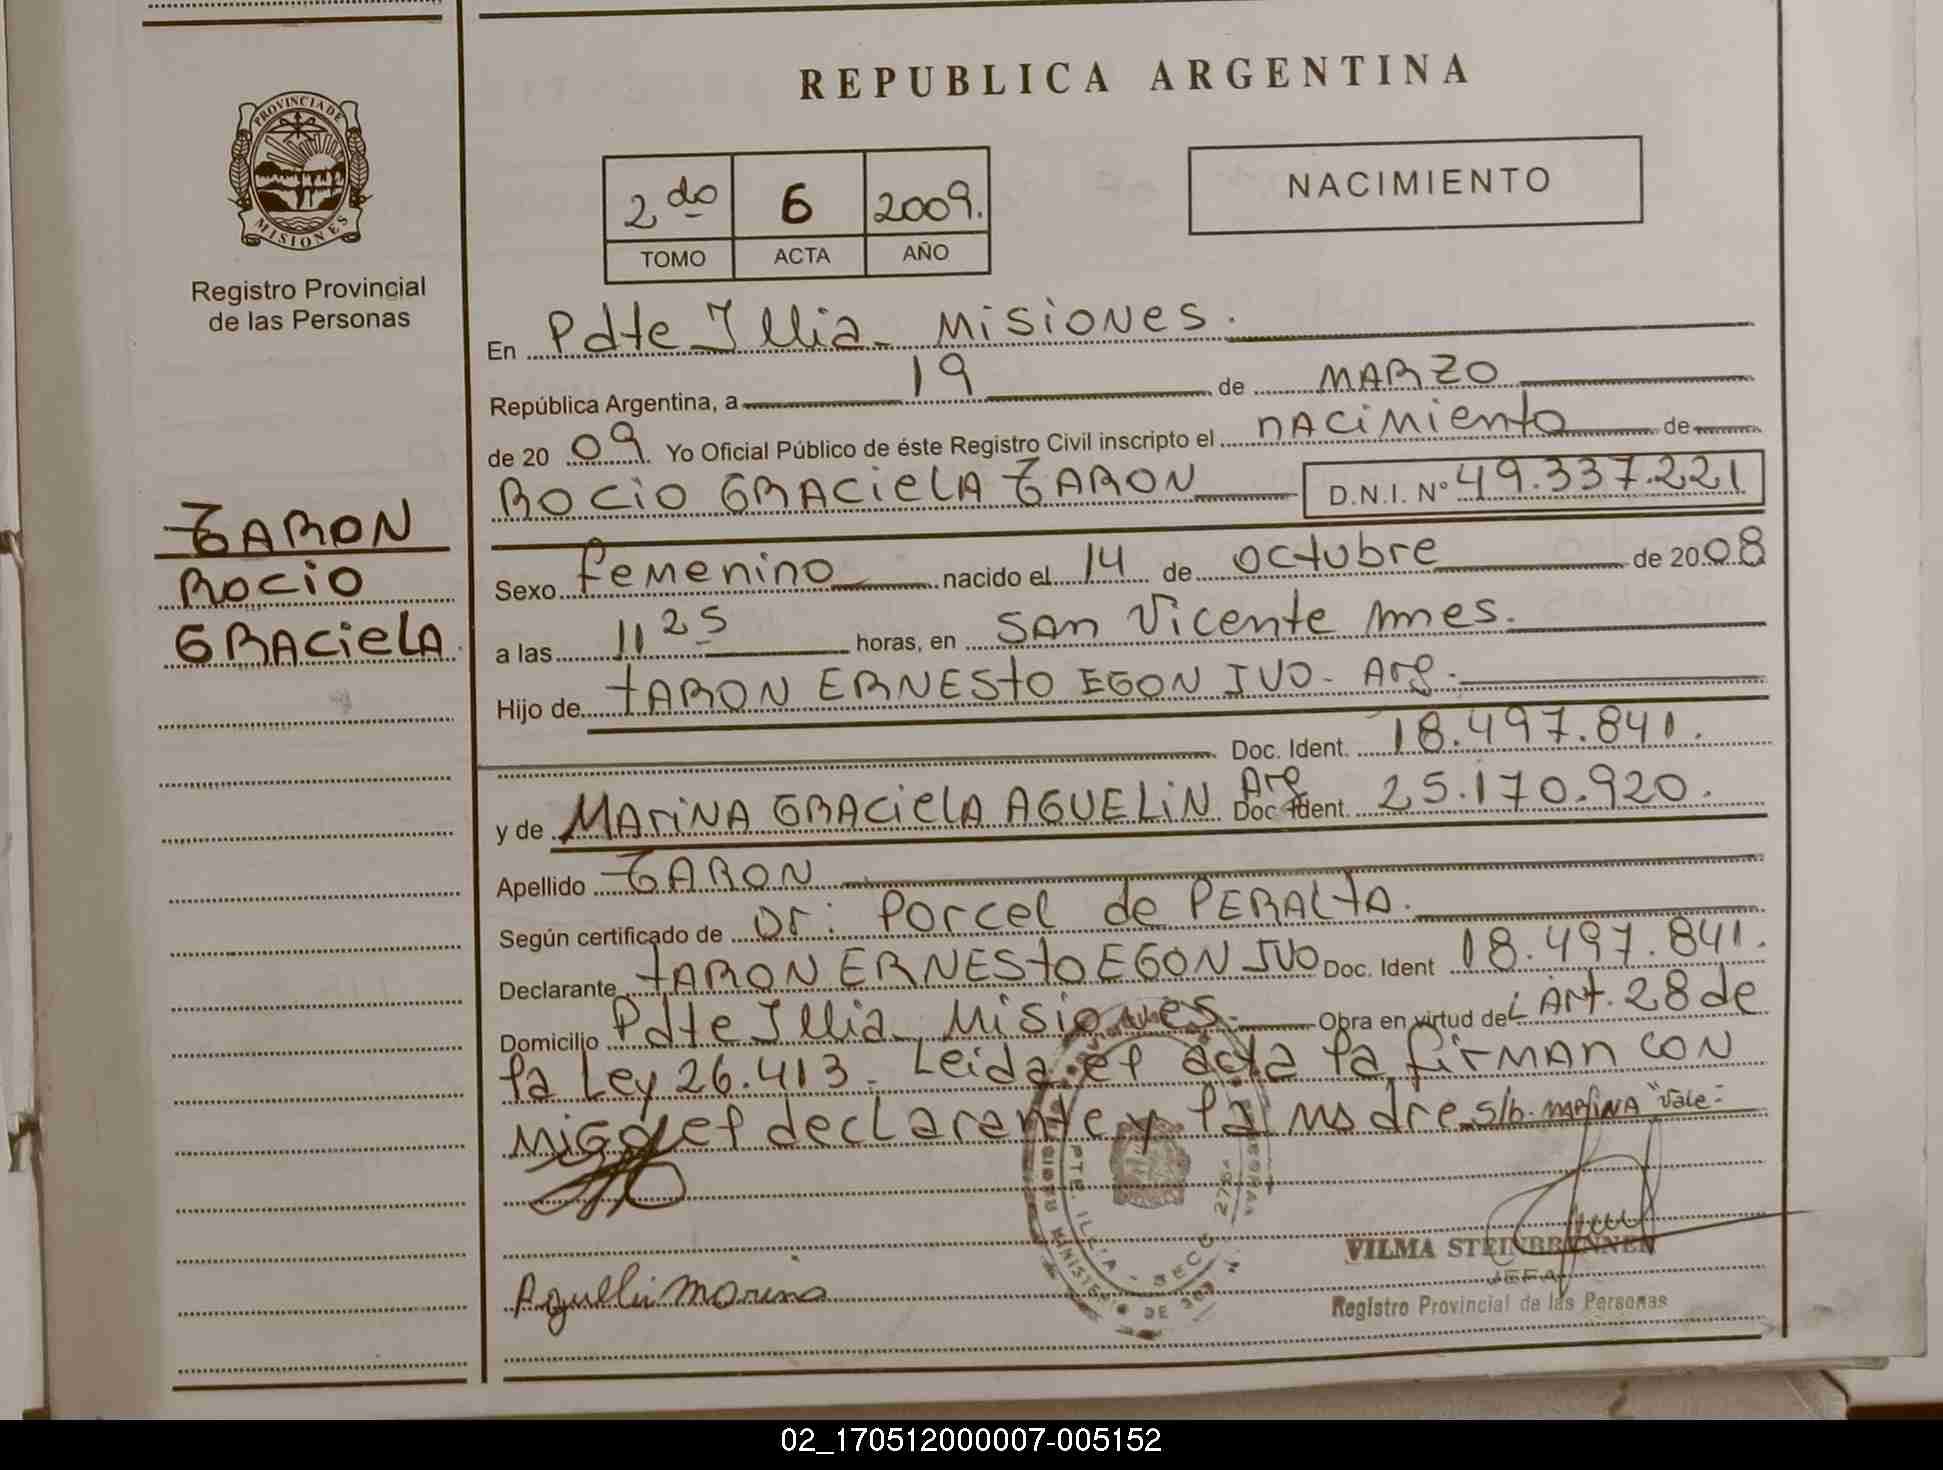 REPUBLICA ARGENTINA
PROVINCIA DE MISIONES
Registro Provincial
de las Personas
2do 6 2009.
TOMO ACTA AÑO
NACIMIENTO
TARON
ROCIO
GRACIELA
En Pdte Illia - MISIONES.
República Argentina, a 19 de MARZO
de 2009. Yo Oficial Público de éste Registro Civil inscripto el NACIMIENTO de
ROCIO GRACIELA TARON D.N.I. N° 49.337.221
Sexo femenino nacido el 14 de octubre de 2008
a las 11 25 horas, en SAN Vicente Mnes.
Hijo de TARON ERNESTO EGON IVO - Arg.
Doc. Ident. 18.497.841.
y de MARINA GRACIELA AGUELIN Arg Doc. Ident. 25.170.920.
Apellido TARON
Según certificado de Dr: Porcel de PERALTA.
Declarante TARON ERNESTO EGON IVO Doc. Ident 18.497.841.
Domicilio Pdte Illia - Misiones. Obra en virtud del Art. 28 de
la Ley 26.413. Leida el acta la firman con
migo el declarante y la madre s/b. MARINA "Vale-
PTE. ILLIA - SECC. 275
VILMA STEINBRENNER
JEFA
Registro Provincial de las Personas
02_170512000007-005152